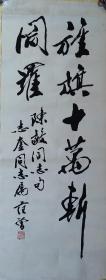 旌旗十萬斬
閻羅
陳毅同志句
志奎同志属 范曾